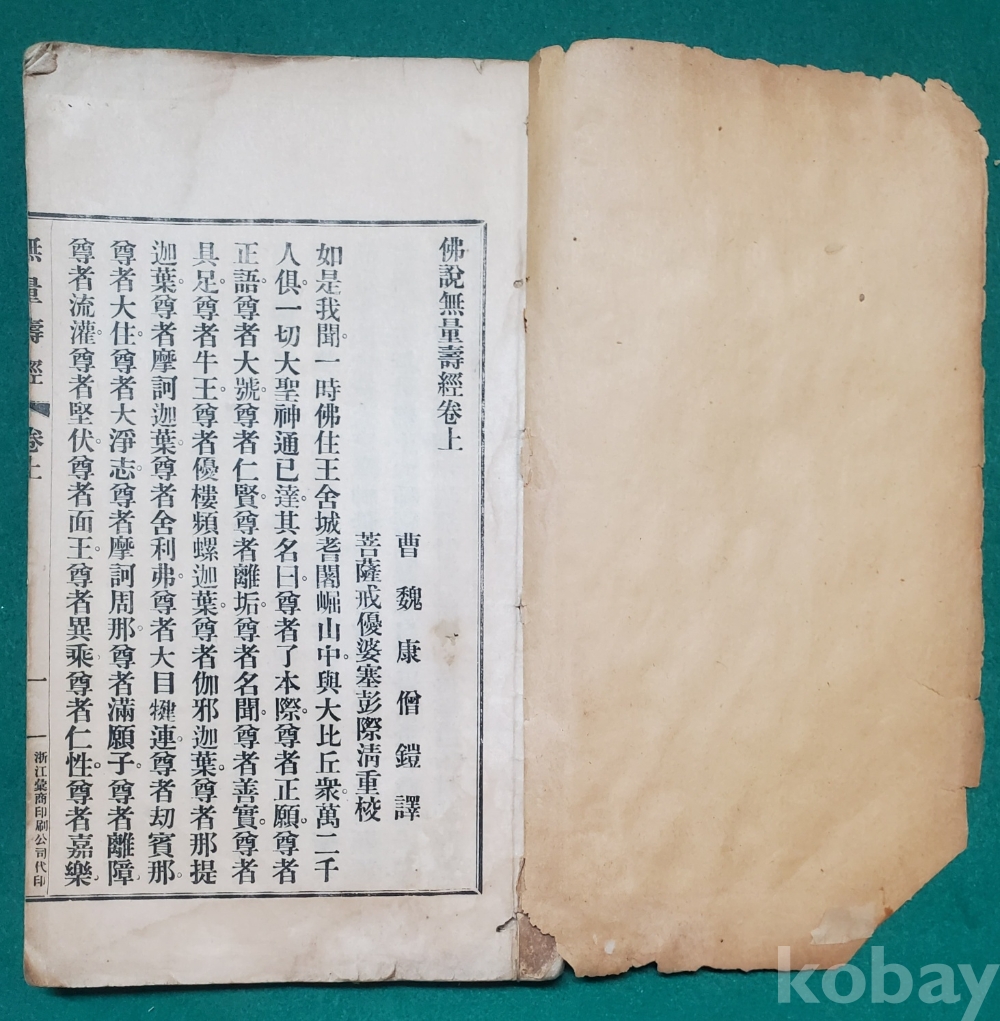 佛說無量壽經卷上
曹魏康僧鎧譯
菩薩戒優婆塞彭際清重校
如是我聞。一時佛住王舍城耆闍崛山中。與大比丘衆。萬二千
人俱。一切大聖。神通已達。其名曰。尊者了本際。尊者正願。尊者
正語。尊者大號。尊者仁賢。尊者離垢。尊者名聞。尊者善實。尊者
具足。尊者牛王。尊者優樓頻螺迦葉。尊者伽邪迦葉。尊者那提
迦葉。尊者摩訶迦葉。尊者舍利弗。尊者大目犍連。尊者劫賓那。
尊者大住。尊者大淨志。尊者摩訶周那。尊者滿願子。尊者離障。
尊者流灌。尊者堅伏。尊者面王。尊者異乘。尊者仁性。尊者嘉樂。
無量壽經 卷上 一
浙江彙商印刷公司代印
kobay